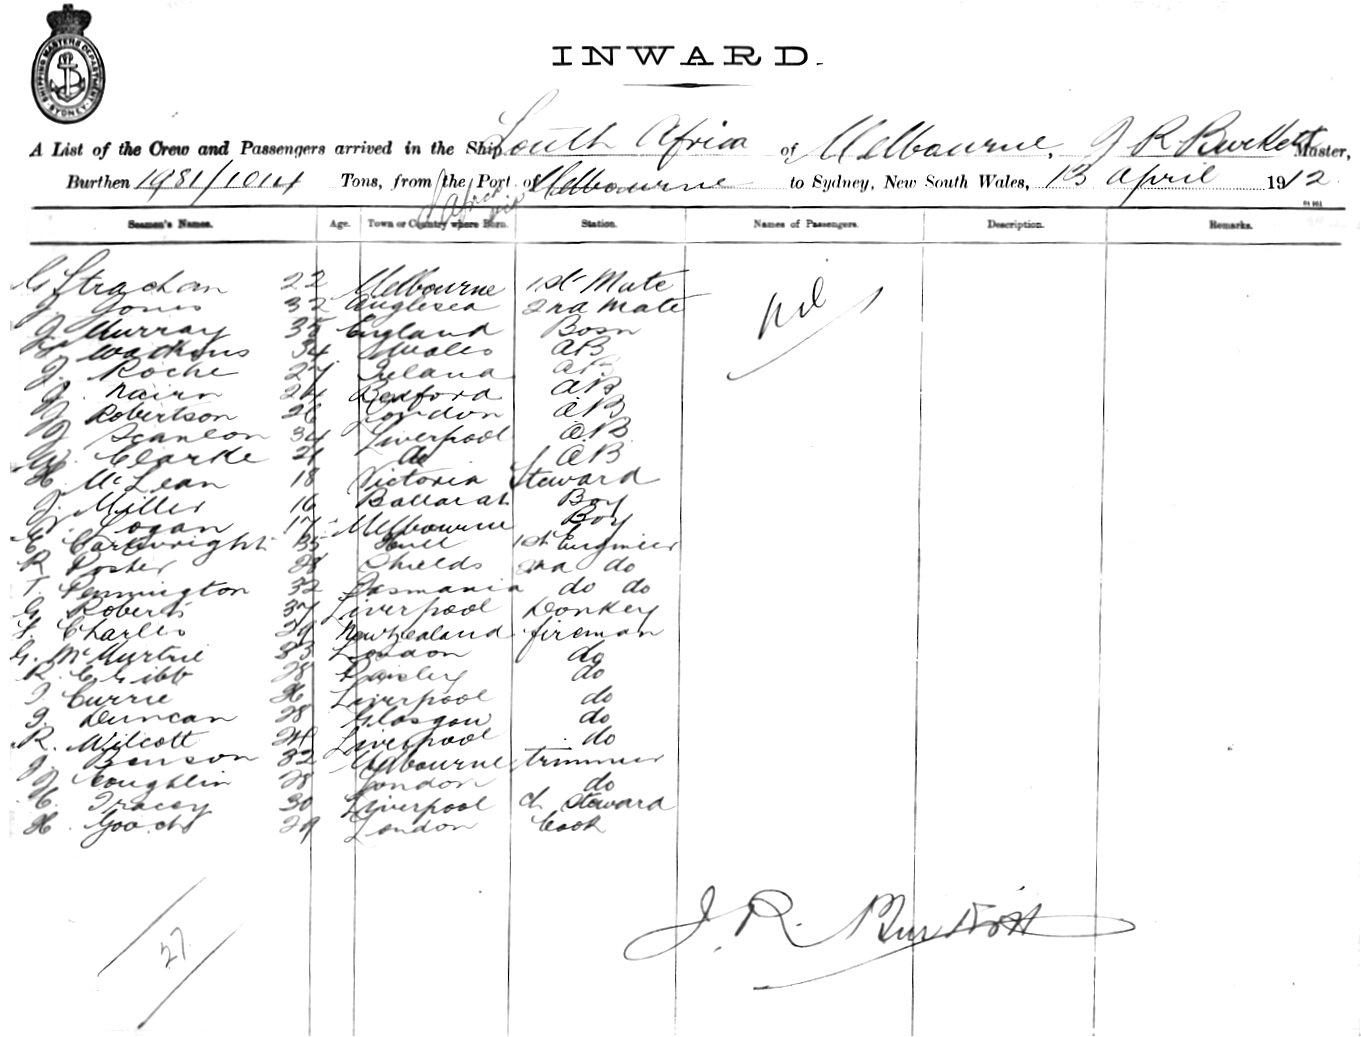 SHIPPING MASTERS DEPARTMENT SYDNEY
INWARD.
A List of the Crew and Passengers arrived in the Ship South Africa of Melbourne, J R Burkett Master,
Burthen 1981/1014 Tons, from the Port of Melbourne to Sydney, New South Wales, 13 April 1912
S Africa via
Seamen's Names. Age. Town or Country where Born. Station. Names of Passengers. Description. Remarks.
G Strachan 22 Melbourne 1st Mate
J Jones 32 Anglesea 2nd Mate
nil
J Murray 38 England Bosn
Watkins 34 Wales AB
J. Roche 27 Ireland AB
J. Nairn 24 Bedford AB
J Robertson 26 London AB
J Scanlon 34 Liverpool AB
W. Clarke 21 do AB
H McLean 18 Victoria Steward
J. Miller 16 Ballarat Boy
J. Logan 17 Melbourne Boy
C Cartwright 35 Hull 1st Engineer
R Foster 28 Shields 2nd do
T. Pennington 32 Tasmania do do
G Roberts 37 Liverpool Donkey
F. Charles 29 New Zealand fireman
G. McMurtrie 33 London do
R C Gibb 28 Paisley do
J Currie 26 Liverpool do
J. Duncan 28 Glasgow do
R. Wilcott 24 Liverpool do
J. Benson 32 Melbourne trimmer
J Coughlin 28 London do
C. Tracey 30 Liverpool Ch Steward
H. Gooch 29 London Cook
J. R. Burkett
27